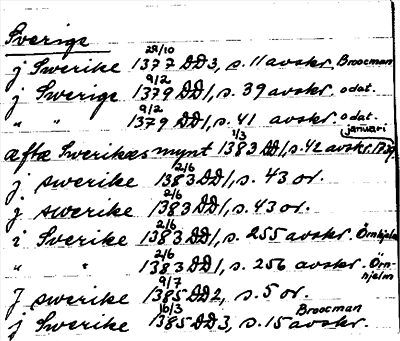 Sverige
j Swerike 29/10 1377 DD3, s. 11 avskr. Broocman
j Swerige 9/2 1379 DD1, s. 39 avskr. odat.
" " 9/2 1379 DD1, s. 41 avskr. odat.
aff Swerikes mynt 1/3 1383 DD1, s. 42 avskr. januari
j swerike 12/6 1383 DD1, s. 43 or.
j swerike 2/6 1383 DD1, s. 43 or.
i Swerike 2/6 1383 DD1, s. 255 avskr. Örnhjelm
" " 2/6 1383 DD1, s. 256 avskr. Örn-
hjelm
J swerike 9/7 1385 DD2, s. 5 or.
j Swerike 16/3 1385 DD3, s. 15 avskr. Broocman